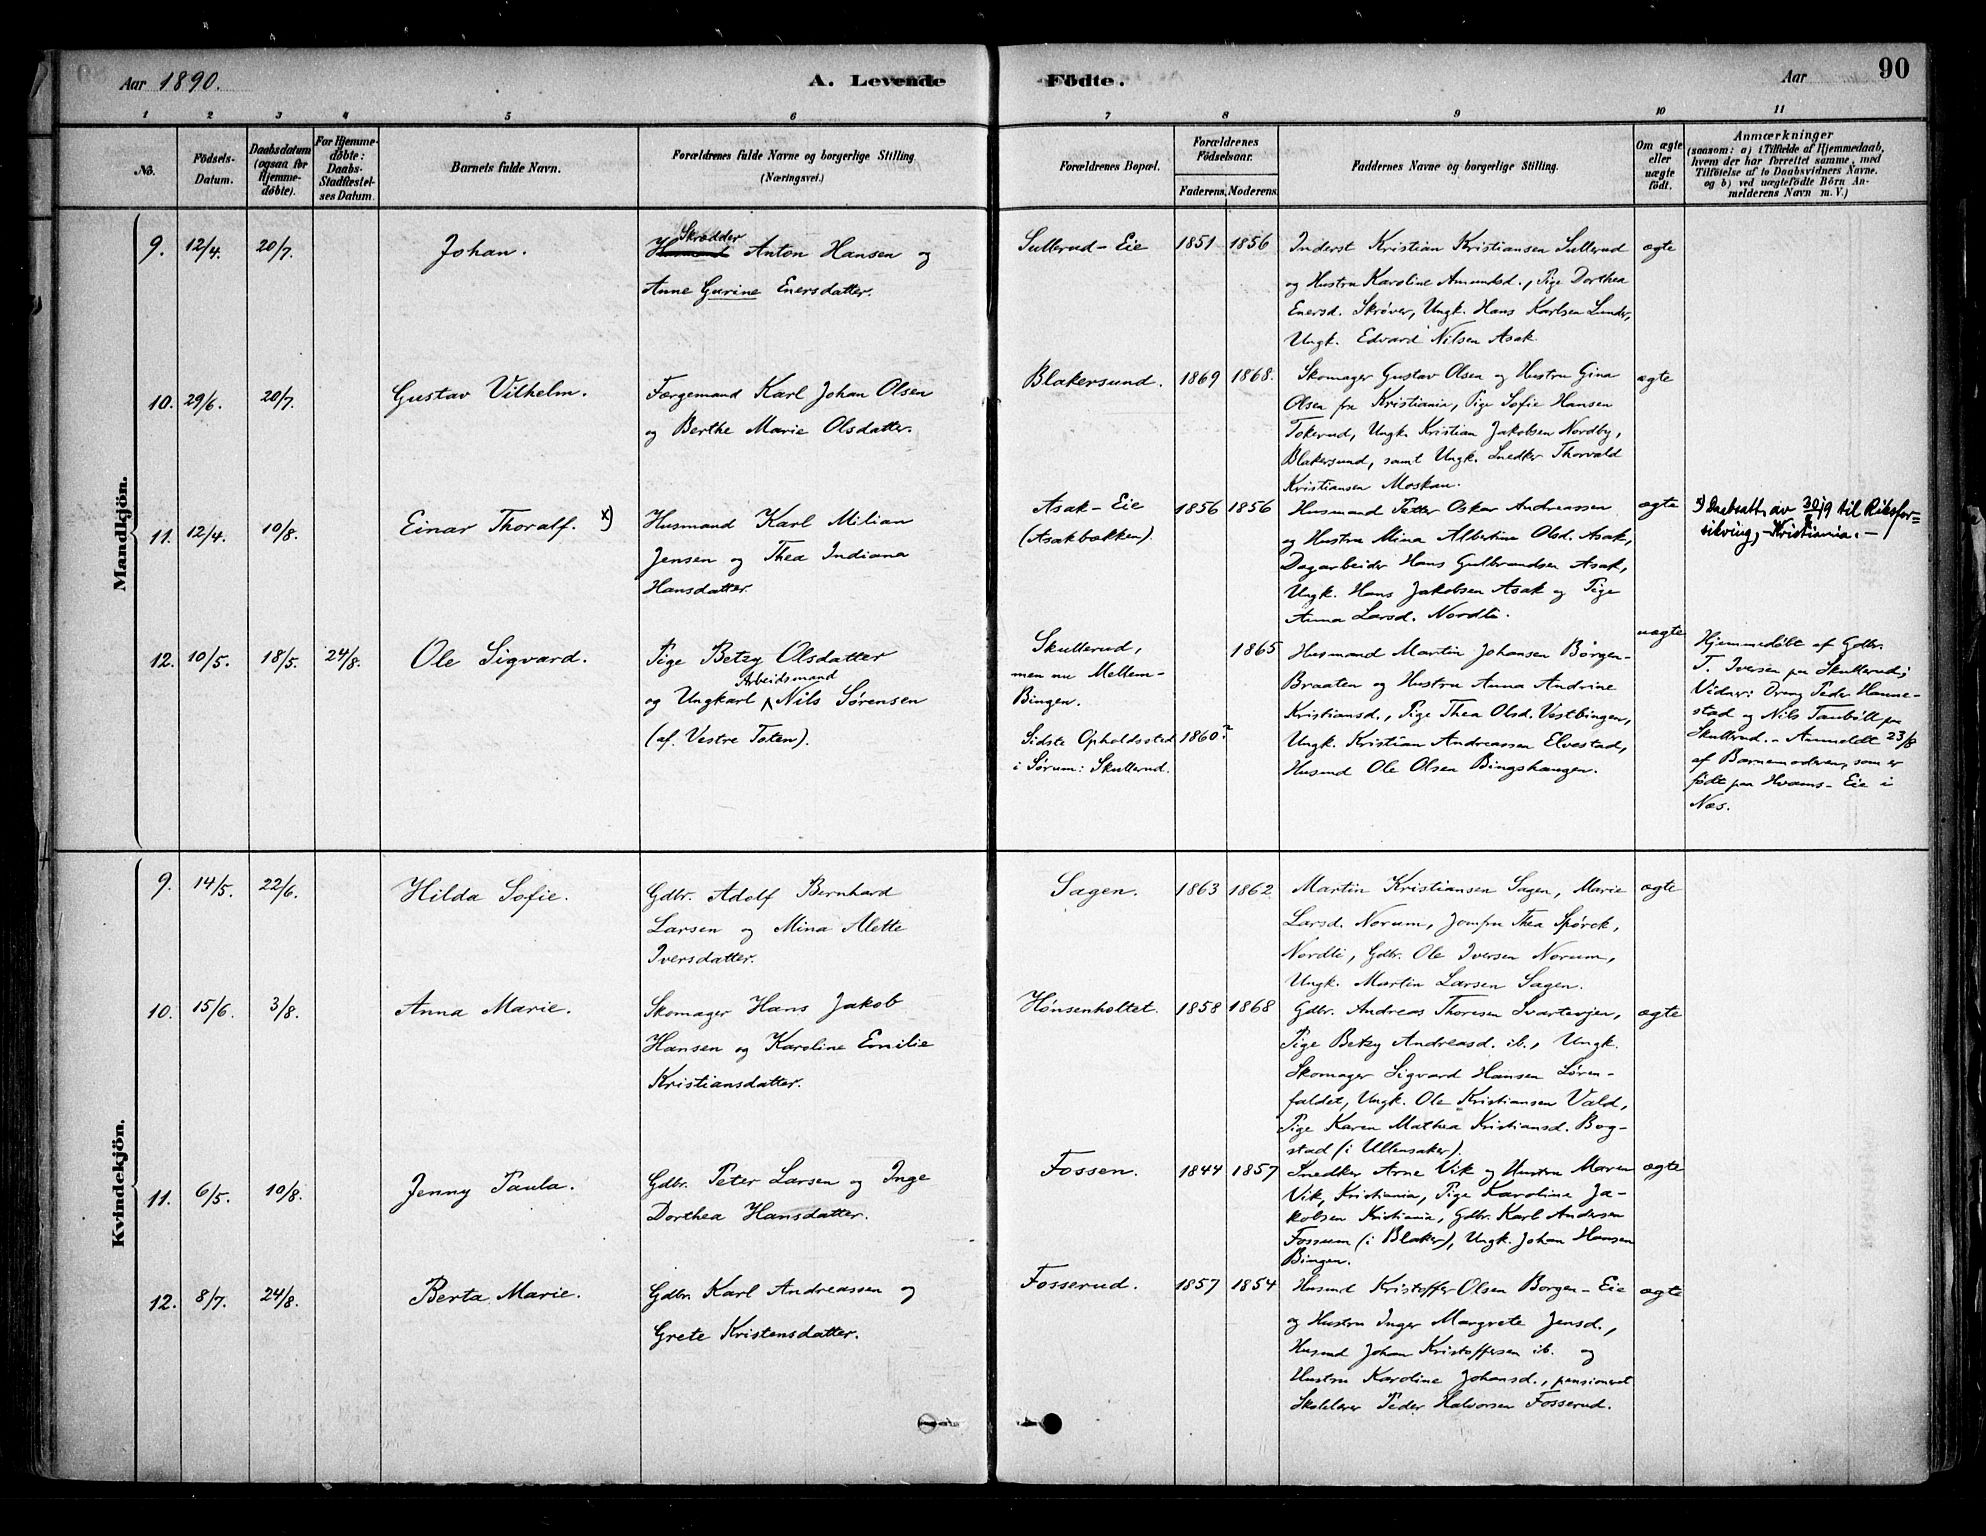 Aar 1890.
A. Levende
Födte.
Aar
90
1
2
3
4
5
6
7
8
9
10
11
No.
Födsels-
Datum.
Daabsdatum
(ogsaa for
Hjemme-
döbte).
For Hjemme-
döbte:
Daabs-
Stadfæstel-
ses Datum.
Barnets fulde Navn.
Forældrenes fulde Navne og borgerlige Stilling
(Næringsvei.)
Forældrenes Bopæl.
Forældrenes
Födselsaar.
Faderens.
Moderens.
Faddernes Navne og borgerlige Stilling.
Om ægte
eller
uægte
födt.
Anmærkninger
(saasom: a) i Tilfælde af Hjemmedaab,
hvem der har forrettet samme, med
Tilföielse af to Daabsvidners Navne.
og b) ved uægtefödte Börn An-
melderens Navn m. V.)
Mandkjön.
9. 12/4. 20/7. Johan.
Skrædder
Husmand Anton Hansen og
Anne Gurine Enersdatter.
Sullerud-Eie 1851 1856
Inderst Kristian Kristiansen Sullerud
og Hustru Karoline Amundsd., Pige Dorthea
Enersd. Skrøver, Ungk. Hans Karlsen Lunder,
Ungk. Edvard Nilsen Asak.
ægte
10. 29/6. 20/7. Gustav Vilhelm.
Færgemand Karl Johan Olsen
og Berthe Marie Olsdatter.
Blakersund. 1869 1868.
Skomager Gustav Olsen og Hustru Gina
Olsen fra Kristiania, Pige Sofie Hansen
Tokerud, Ungk. Kristian Jakobsen Nordby,
Blakersund, samt Ungk. Snedker Thorvald
Kristiansen Moskau.
ægte
11. 12/4. 10/8. Einar Thoralf. x)
Husmand Karl Milian
Jensen og Thea Indiana
Hansdatter.
Asak-Eie
(Asakbækken).
1856 1856
Husmand Petter Oskar Andreassen
og Hustru Mina Albertine Olsd. Asak,
Dagarbeider Hans Gulbrandsen Asak,
Ungk. Hans Jakobsen Asak og Pige
Anna Larsd. Nordli.
ægte
x) Daabsatt. av 30/9 til Riksfor-
sikring, Kristiania.
12. 10/5. 18/5. 24/8. Ole Sigvard.
Pige Betzy Olsdatter
Arbeidsmand
og Ungkarl Nils Sørensen
(af Vestre Toten).
Skullerud,
men nu Mellem-
Bingen.
Sidste Opholdssted
i Sørum: Skullerud.
1860?
1865
Husmand Martin Johansen Børgen-
Braaten og Hustru Anna Andrine
Kristiansd., Pige Thea Olsd. Vestbingen,
Ungk. Kristian Andreassen Elvestad,
Husmd Ole Olsen Bingshaugen.
uægte
Hjemmedøbt af Gdbr.
T. Iversen paa Skullerud;
Vidner: Dreng Peder Hanne-
stad og Nils Taubøll paa
Skullerud. - Anmeldt 23/8
af Barnemoderen, som er
født paa Hvams-Eie i
Næs.
Kvindekjön.
9. 14/5. 22/6. Hilda Sofie.
Gdbr. Adolf Bernhard
Larsen og Mina Alette
Iversdatter.
Sagen. 1863 1862
Martin Kristiansen Sagen, Marie
Larsd. Norum, Jomfru Thea Spørck,
Nordli, Gdbr. Ole Iversen Norum,
Ungk. Martin Larsen Sagen.
ægte
10. 15/6. 3/8. Anna Marie.
Skomager Hans Jakob
Hansen og Karoline Emilie
Kristiansdatter.
Hønsenholtet. 1858 1868
Gdbr. Andreas Thoresen Svartevjen,
Pige Betzy Andreasd. ib., Ungk.
Skomager Sigvard Hansen Løren-
faldet, Ungk. Ole Kristiansen Vald,
Pige Karen Mathea Kristiansd. Bog-
stad (i Ullensaker).
ægte
11. 6/5. 10/8. Jenny Paula.
Gdbr. Peter Larsen og Inge
Dorthea Hansdatter.
Fossen. 1844 1857
Snedker Arne Vik og Hustru Maren
Vik, Kristiania, Pige Karoline Ja-
kobsen Kristiania, Gdbr. Karl Andersen
Fossum (i Blaker), Ungk. Johan Hansen
Bingen.
ægte
12. 8/7. 24/8. Berta Marie.
Gdbr. Karl Andreassen og
Grete Kristensdatter.
Fosserud. 1857 1854
Husmd Kristoffer Olsen Borgen-Eie
og Hustru Inger Margrete Jensd.,
Husmd Johan Kristoffersen ib. og
Hustru Karoline Johansd., pensioneret
Skolelærer Peder Halvorsen Fosserud.
ægte